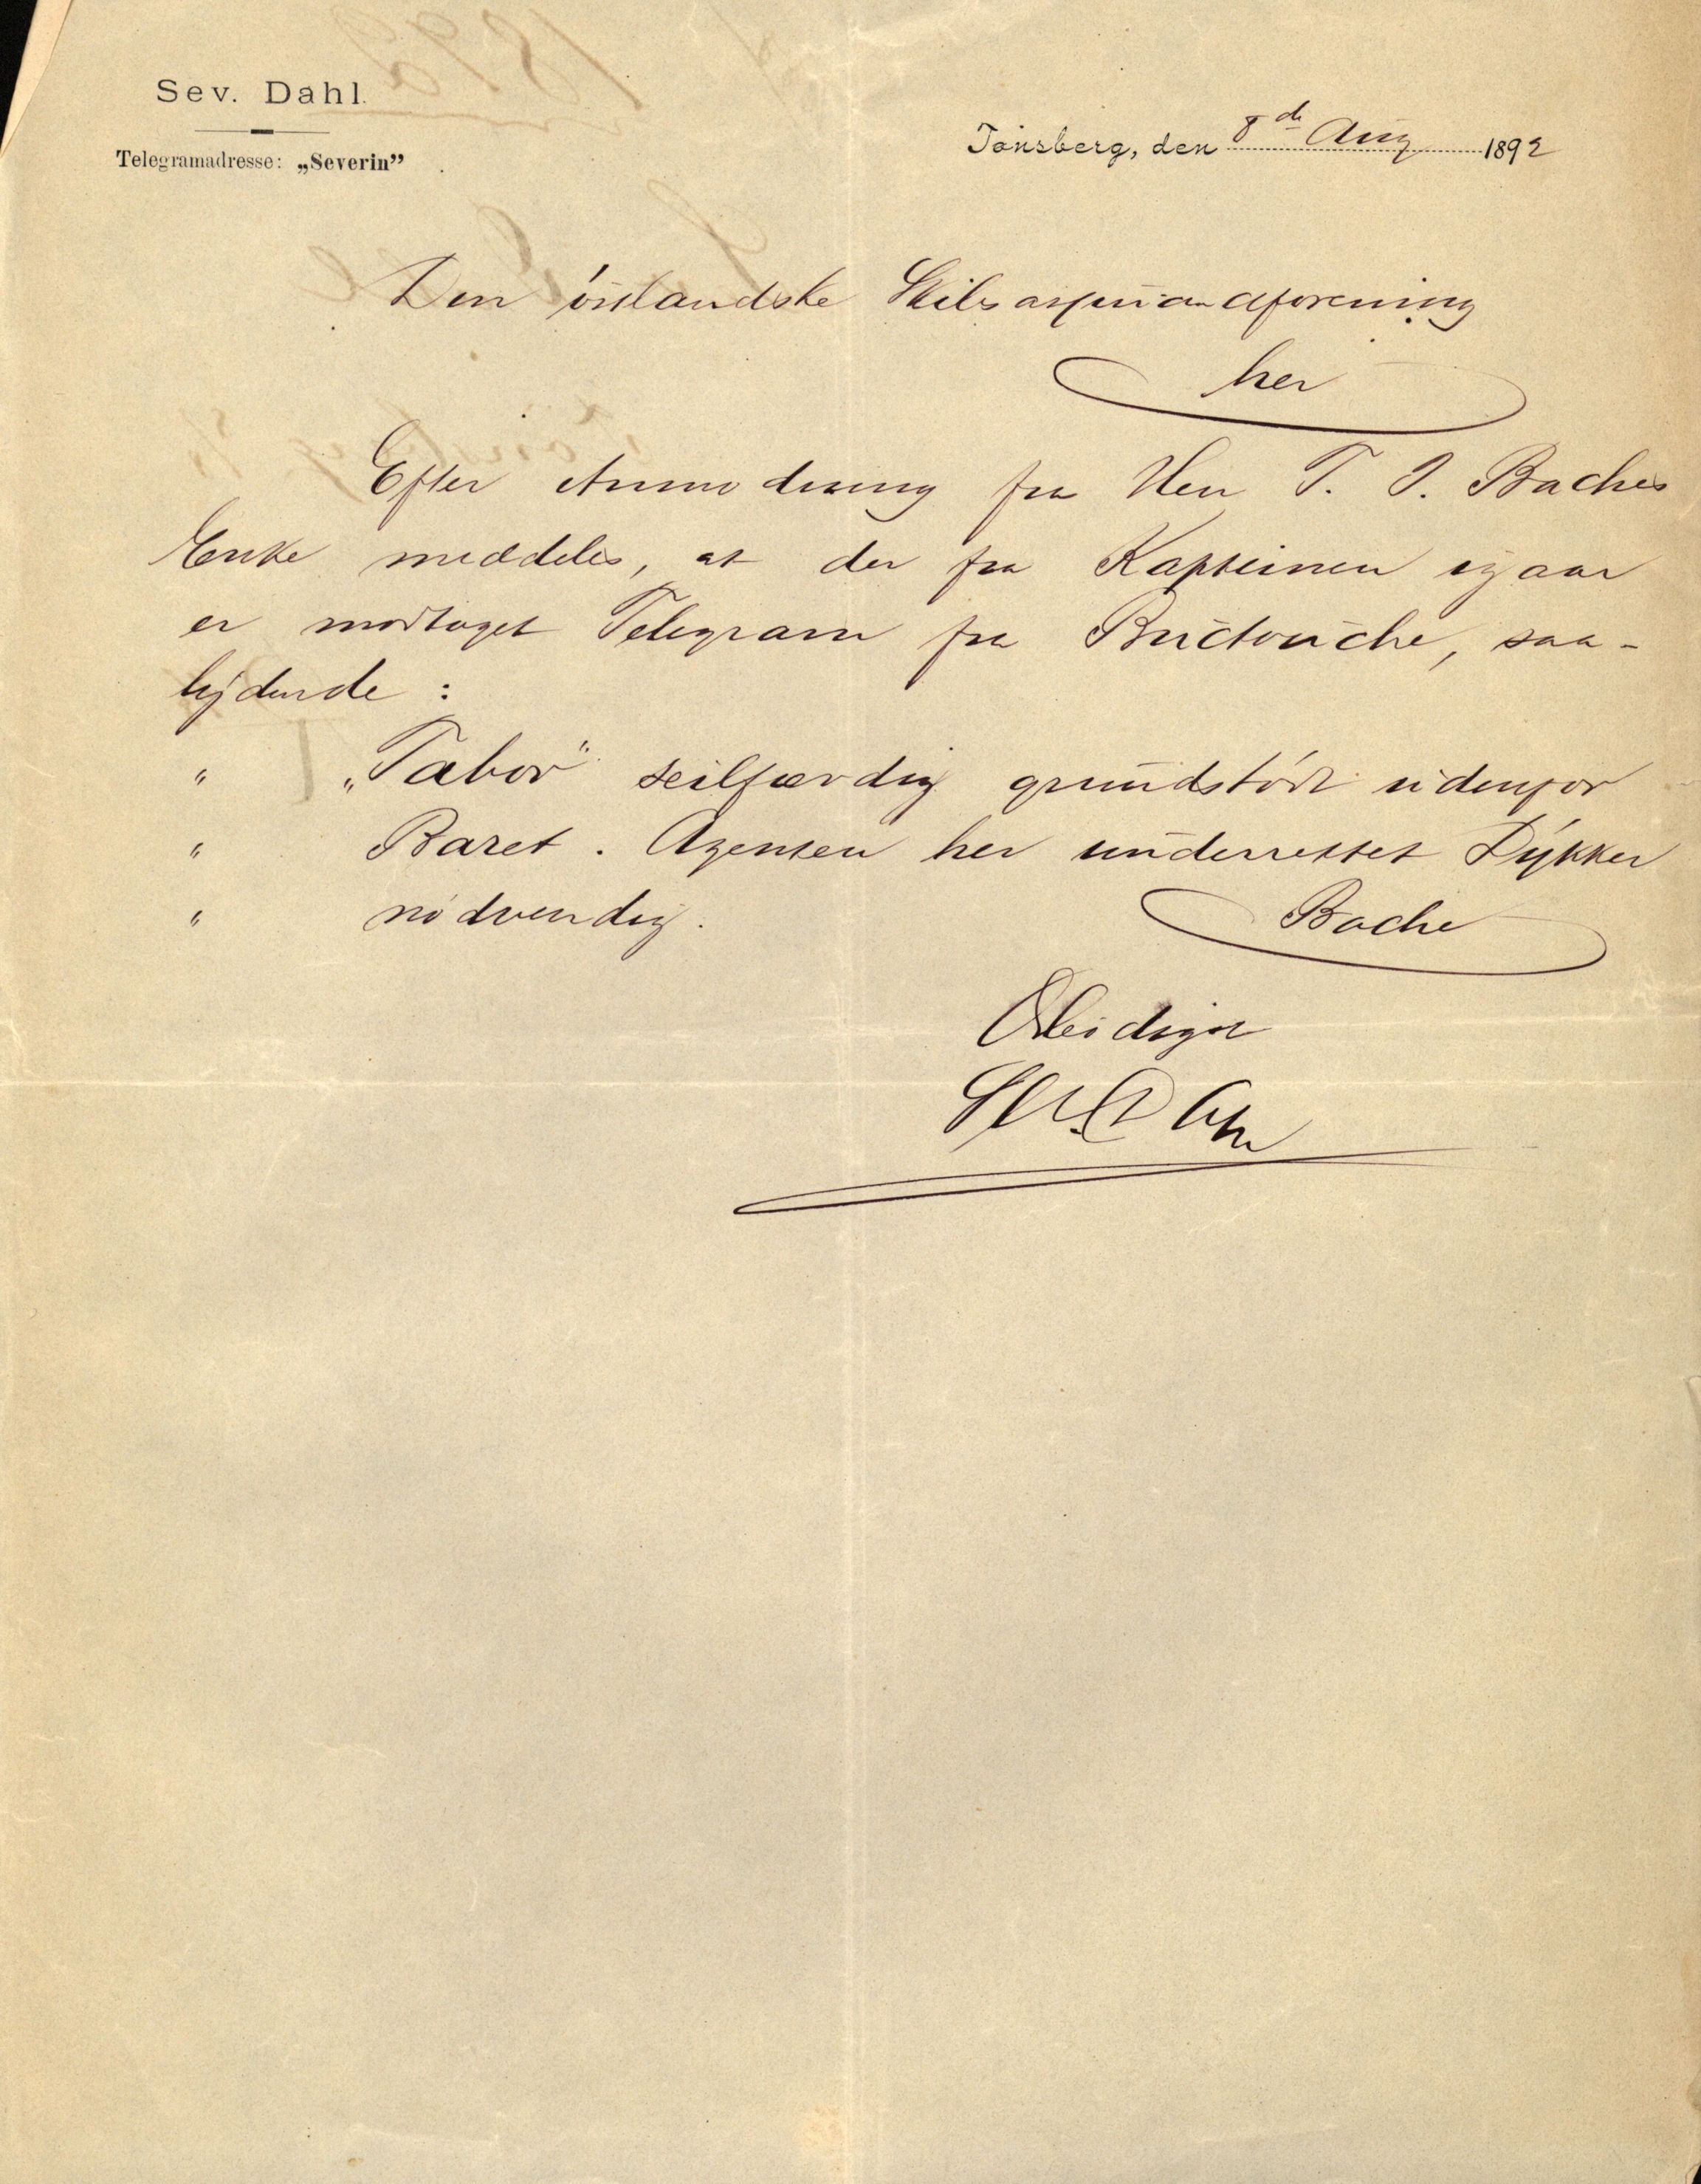 Sev. Dahl.
Telegramadresse: „Severin”
Tönsberg, den 8de Aug 1892
Den östlandske Skibsassuranceforening
her
Efter Anmodning fra Herr T. J. Baches
Enke meddeles, at der fra Kapteinen igaar
er modtaget Telegram fra Buctouche, saa-
lydende :
" „Tabor” seilfærdig grundstødt udenfor
" Baret. Agenten her underrettet Dykker
" nödvendig. Bache
Ærbödigst
Sev. Dahl